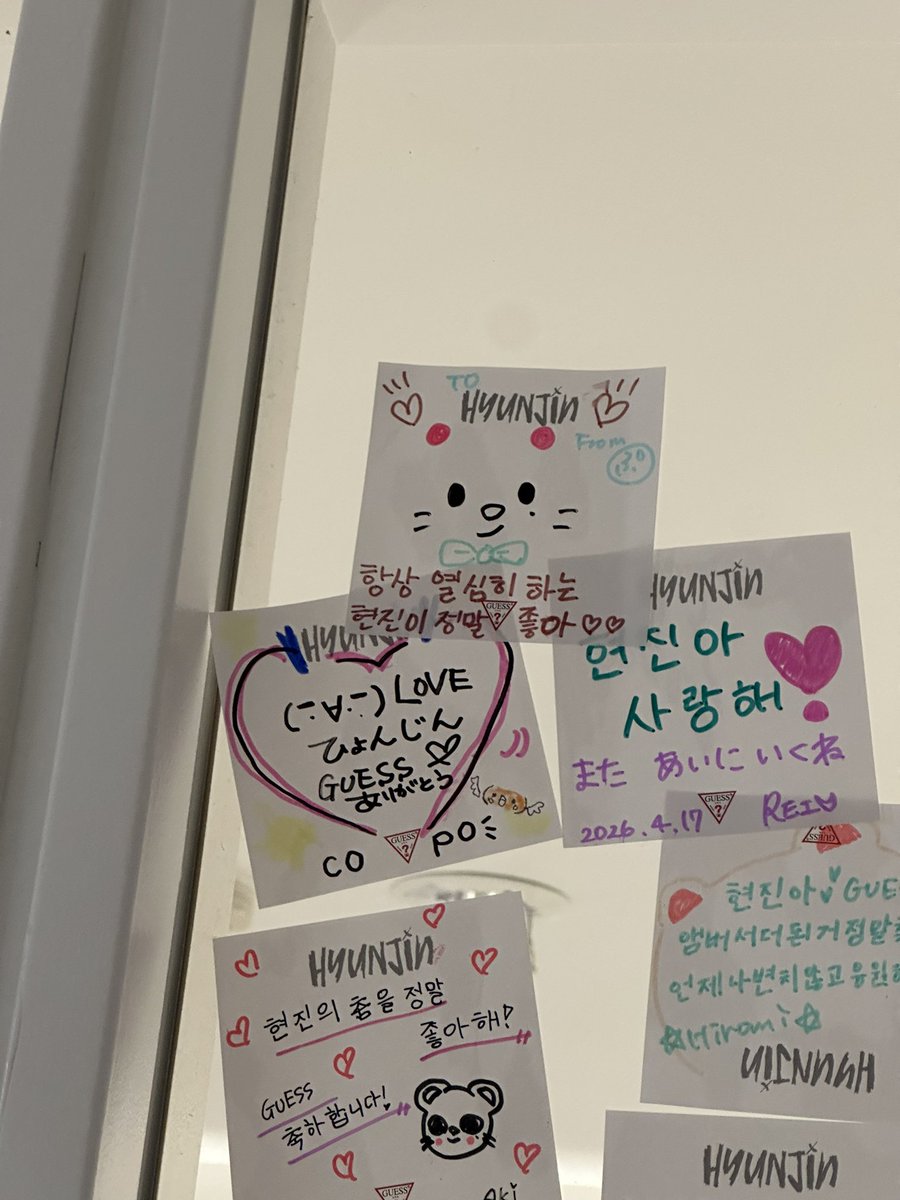 TO
HYUNJiN
From
항상 열심히 하는
현진이 정말 좋아♡♡
GUESS
?
HYUNJiN
LOVE
ひょんじん
GUESS♡
ありがとう
CO PO
GUESS
?
HYUNJiN
현진아
사랑해
また あいにいくね
2026.4.17
REI♡
GUESS
?
HYUNJiN
현진의 춤을 정말
좋아해!
GUESS
축하합니다!
GUESS
Aki
GUESS
?
현진아 GUE
앰버서더된거 정말
언제나변치않고응원
☆Hiromi☆
HYUNJiN
HYUNJiN